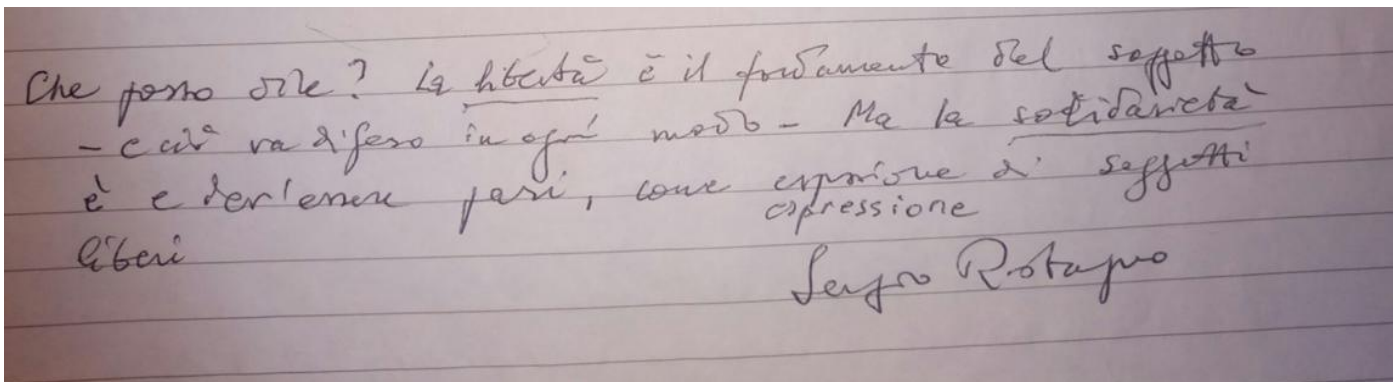 Che posso dire? La libertà è il fondamento del soggetto
- e ciò va difeso in ogni modo - Ma la solidarietà
è e dev'essere pari, come espressione di soggetti
espressione
liberi
Sergio Rotagno